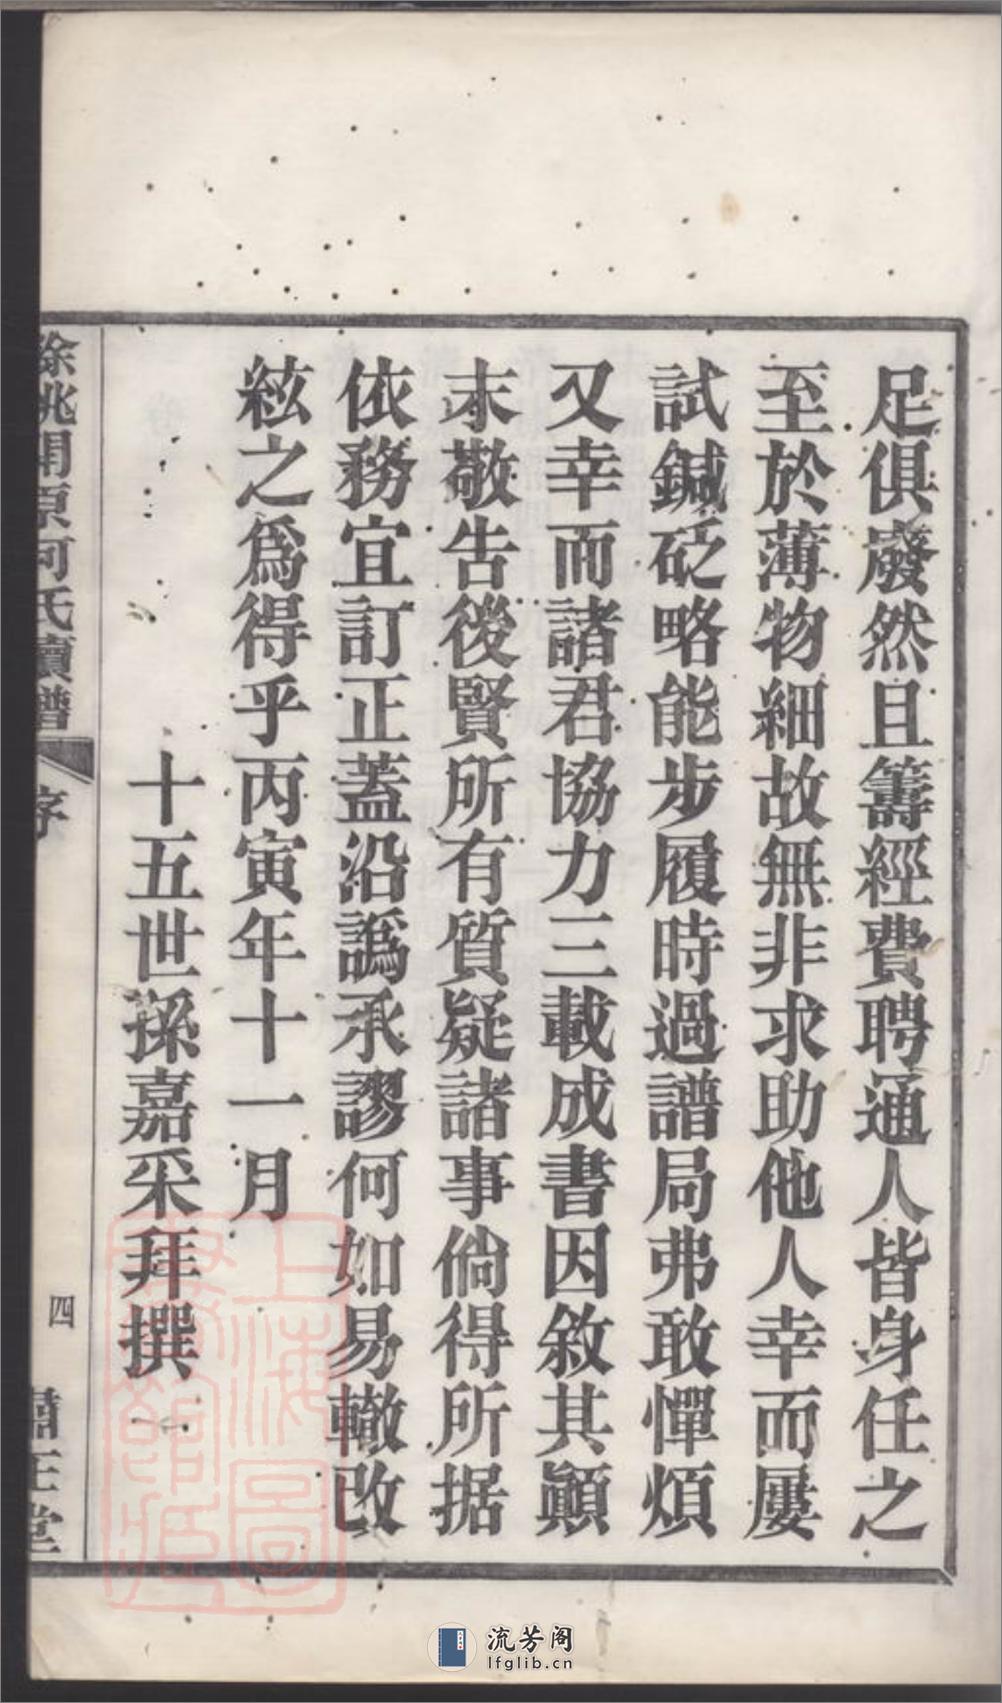 足俱廢然且籌經費聘通人皆身任之
至於薄物細故無非求助他人幸而屢
試鍼砭略能步履時過譜局弗敢憚煩
又幸而諸君協力三載成書因敘其顛
末敬告後賢所有質疑諸事倘得所据
依務宜訂正蓋沿譌承謬何如易轍改
絃之爲得乎丙寅年十一月
十五世孫嘉采拜撰
餘姚開原何氏續譜
序
四
正堂
上海圖書館藏
流芳阁
lfglib.cn